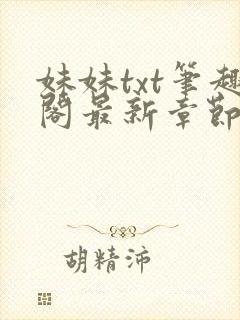 妹妹txt筆趣
閣最新章節
胡精沛